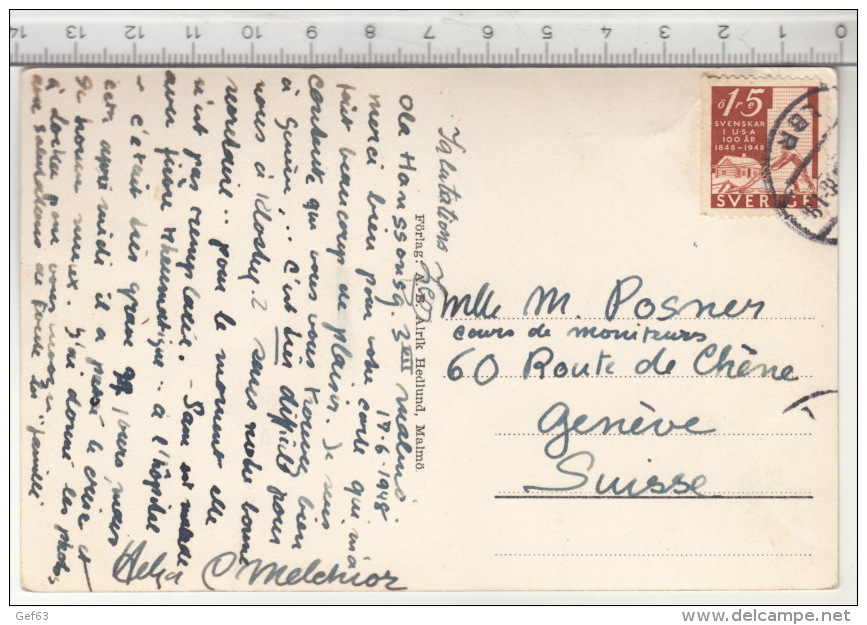 14 13 12 11 10 9 8 7 6 5 4 3 2 1 0
ö1r5
SVENSKAR
I USA
100 ÅR
1848-1948
SVERIGE
LBR
Mlle M. Posner
cours de moniteurs
60 Route de Chêne
Genève
Suisse
Förlag: A.-B. Alrik Hedlund, Malmö.
Salutations
Ola Hanssonsg. 3 VIII Malmö
17.6-1948
merci bien pour votre carte qui m'a
fait beaucoup de plaisir. Je suis
contente que vous vous trouvez bien
à Genève... C'est très difficile pour
nous à 2 sans notre bonne
pour le moment elle
n'est pas remplacée. - Sam est malade
avec fièvre rhumatique - à l'hôpital
- c'était très grave jours, mais
cet après midi il a passé la crise et
se trouve mieux. J'ai donné les photos
à pour vous
avec salutations de famille
Helga O Melchior
Gef63
delcampe.net